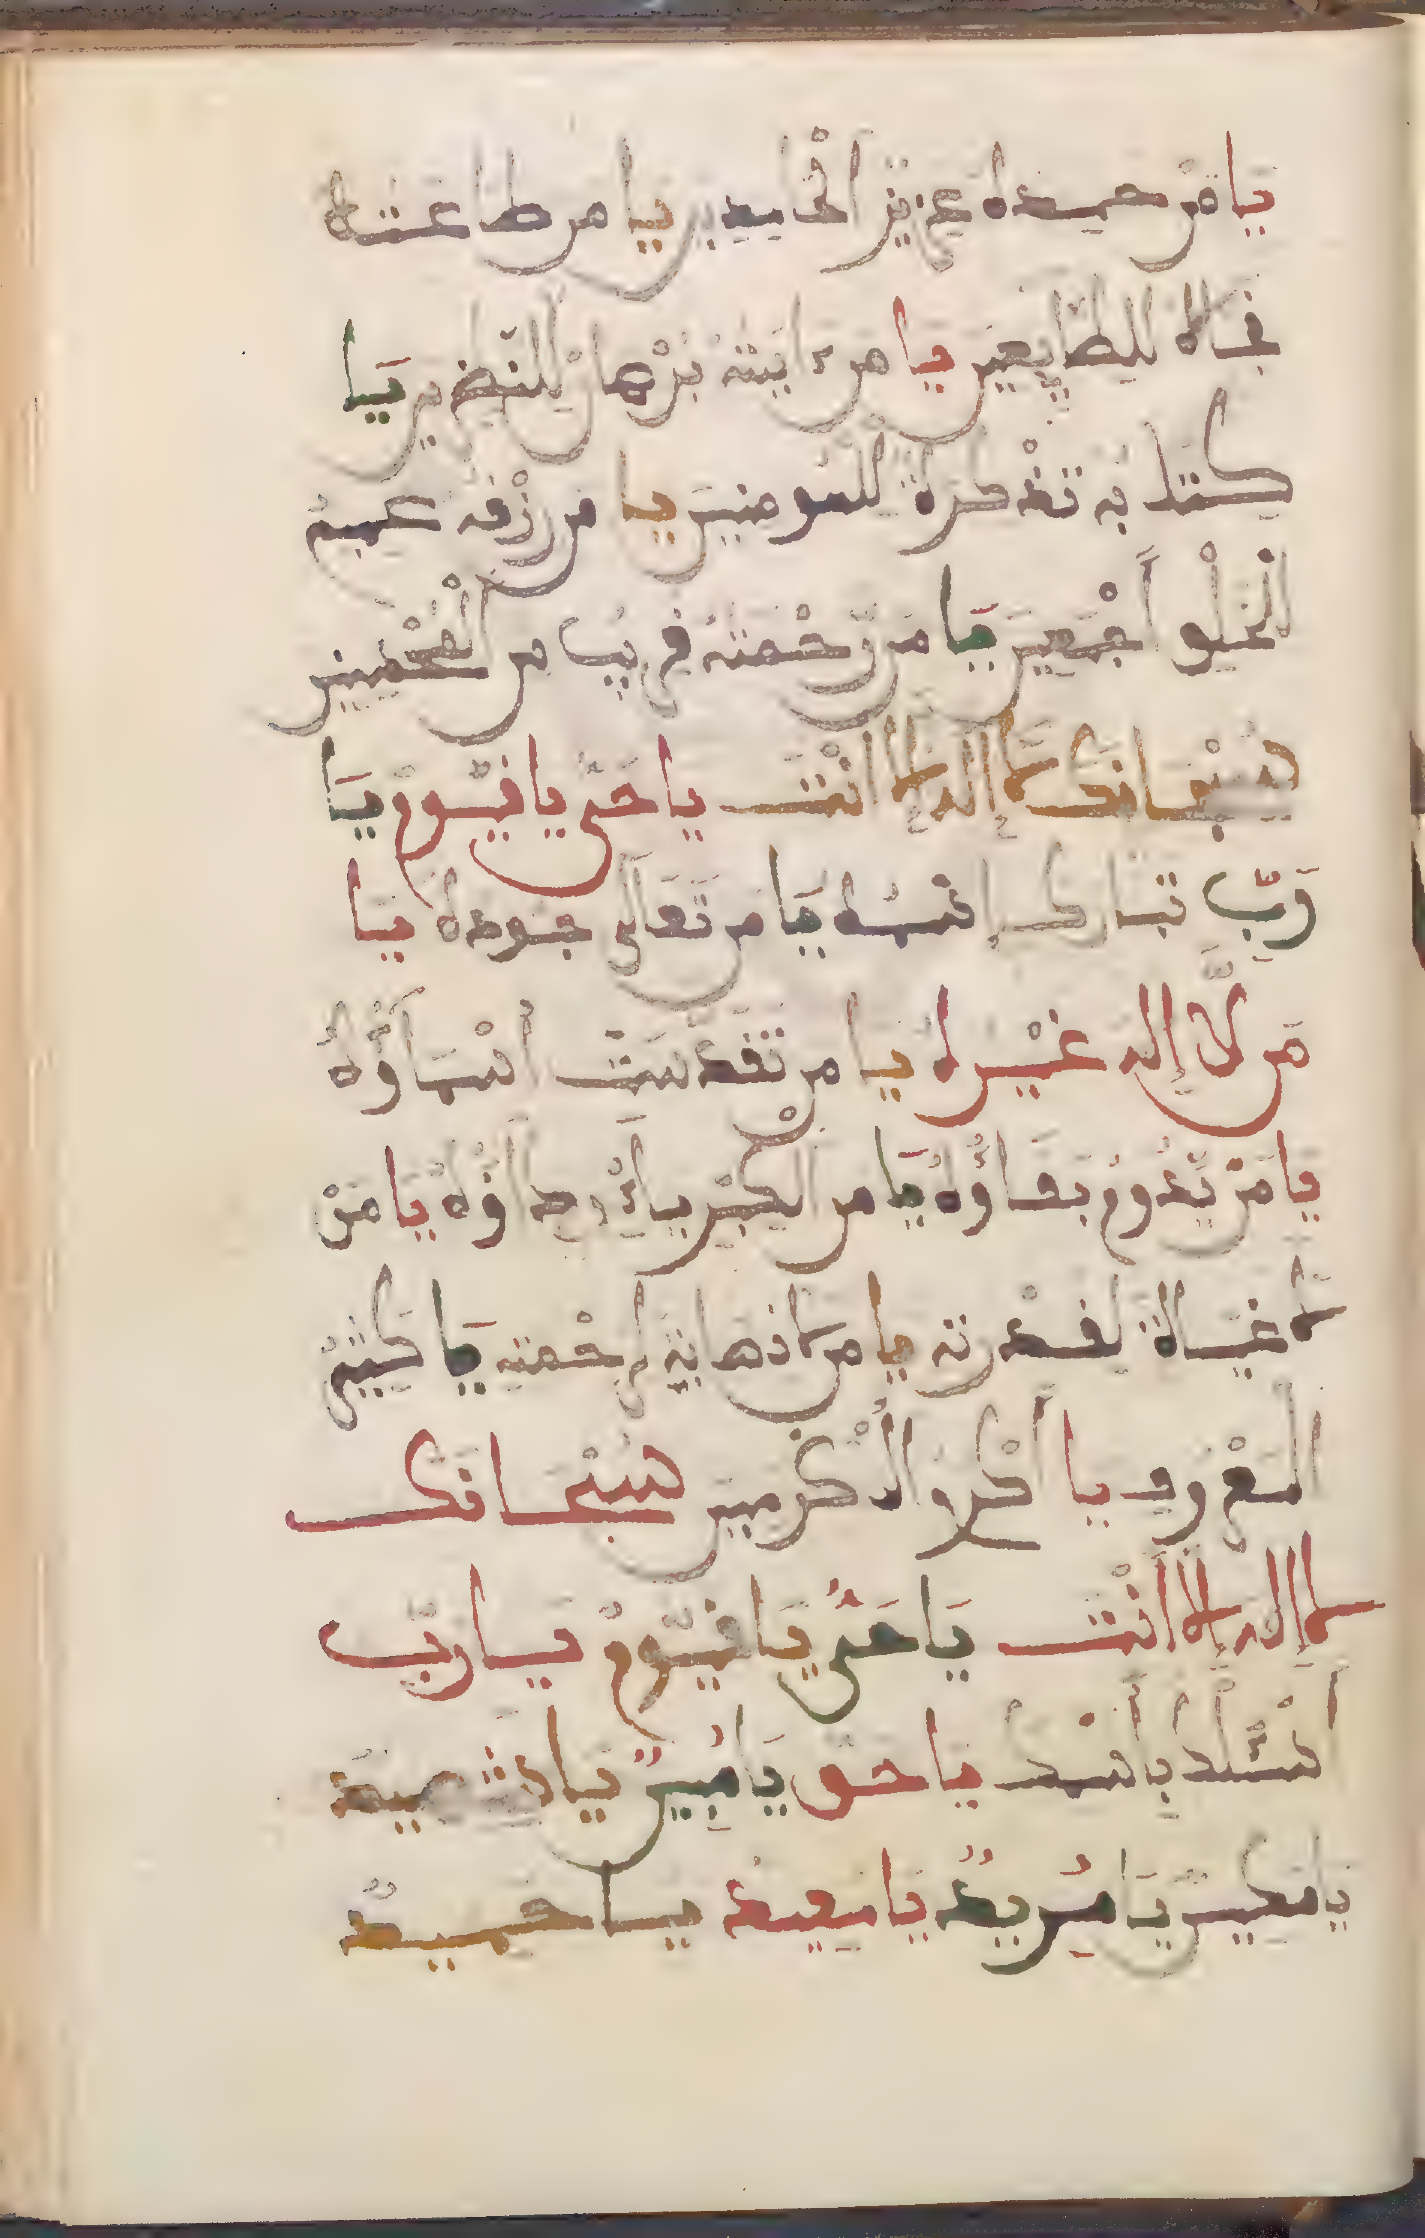 يا من حمده عز يزا لحا مدين يا من طا عته
نجاه للطايعين يا من ءا يته برها ن للنظرين يا
كتا به تذكرة للمومنين يا من رزقه عميم
الخلو اجمعين يا من رحمته قريب من المحسنين
سبحانك لا إله إلا انت يا حي يا قيوم يا
رب تبارك اسمه يا من تعالى جوده يا
من لا إله غيره يا من تقدست أسماؤه
يا من يدوم بقاؤه يا من الكبرياء رداؤه يا من
لا غياية لقدرته يا من لا نهاية لرحمته يا كثير
المعروف يا أكرم الاكرمين سبحانك
لا إله إلا أنت يا حي يا قيوم يا رب
أسئلك بأسمك يا حق يا مبين يا
يا مكين يا مريد يا معيد يا حميد